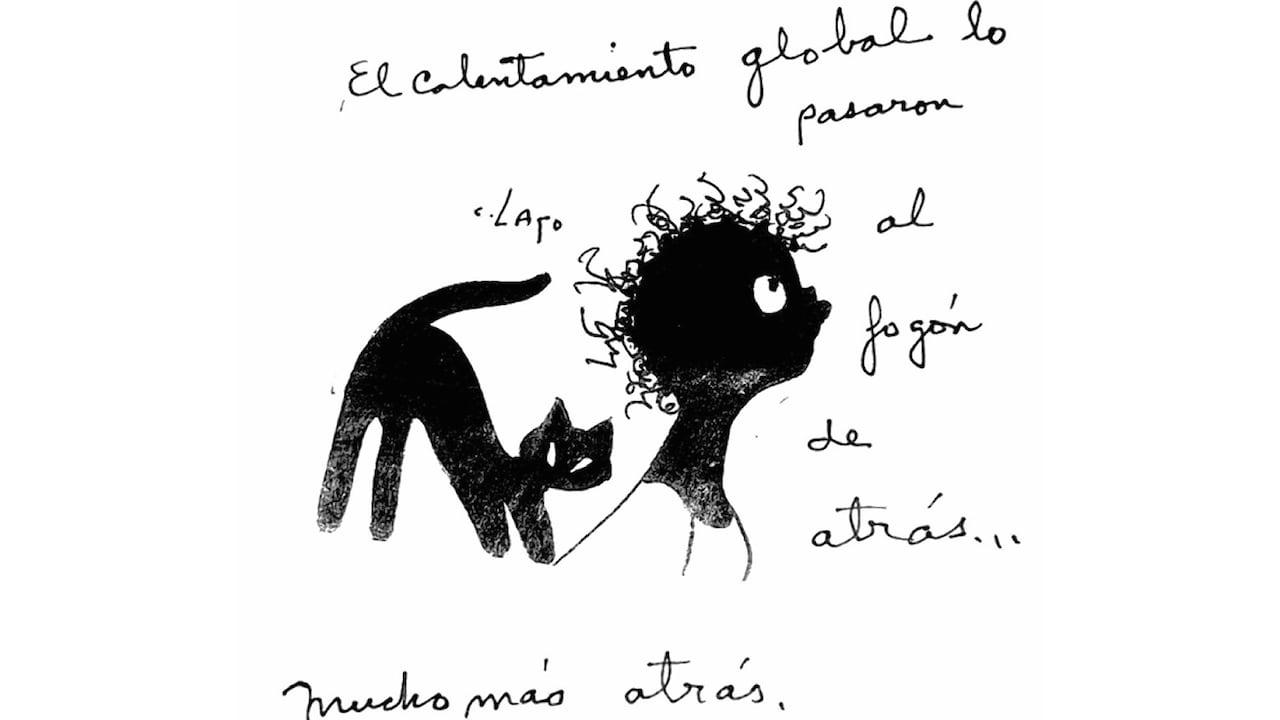 El calentamiento global lo
pasaron
al
fogón
de
atrás...
Mucho más atrás.